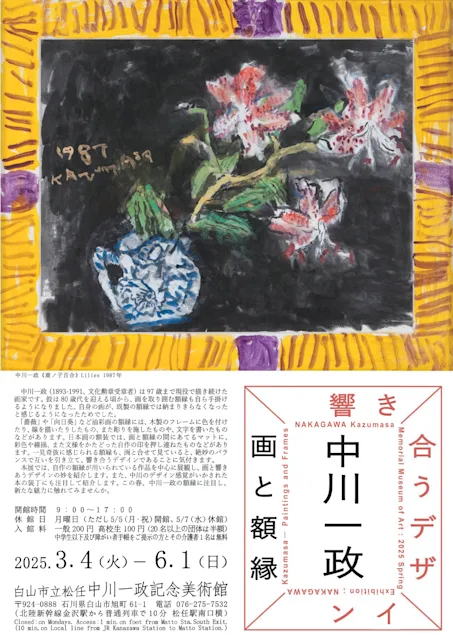 1987
KAZUMASA
中川一政《鹿ノ子百合》Lilies 1987年
中川一政(1893-1991、文化勲章受章者)は97歳まで現役で描き続けた
画家です。彼は80歳代を迎える頃から、画を取り囲む額縁も自ら手掛け
るようになりました。自身の画が、既製の額縁では納まりきらなくなった
と感じるようになったためでした。
《薔薇》や《向日葵》など油彩画の額縁には、木製のフレームに色を付け
たり、線を描いたりしたもの、また彫りを施したものや、文字を書いたもの
などがあります。日本画の額装では、画と額縁の間にあてるマットに、
彩色や線描、また文様をかたどった自作の印を押し連ねたものなどがあり
ます。一見奇抜に感じられる額縁も、画と合せて見ていると、絶妙のバラ
ンスで互いを引き立て、響き合うデザインであることに気付きます。
本展では、自作の額縁が用いられている作品を中心に展観し、画と響き
あうデザインの妙を紹介します。また、中川のデザイン感覚がいかされた
本の装丁にも注目して紹介します。この春、中川一政の額縁に注目し、
新たな魅力に触れてみませんか。
開館時間 9:00〜17:00
休館日 月曜日(ただし5/5(月・祝)開館、5/7(水)休館)
入館料 一般200円 高校生100円(20名以上の団体は半額)
中学生以下及び障がい者手帳をご提示の方とその介護者1名は無料
2025.3.4(火)―6.1(日)
白山市立松任中川一政記念美術館
〒924-0888 石川県白山市旭町61-1 電話 076-275-7532
(北陸新幹線金沢駅から普通列車で10分 松任駅南口横)
Closed:on Mondays. Access:1 min.on foot from Matto Sta.South Exit.
(10 min.on local line from JR Kanazawa Station to Matto Station.)
響き
合うデザ
イン
中川一政
画と額縁
NAKAGAWA Kazumasa
Memorial Museum of Art : 2025 Spring
Exhibition : NAKAGAWA
Kazumasa― Paintings and Frames